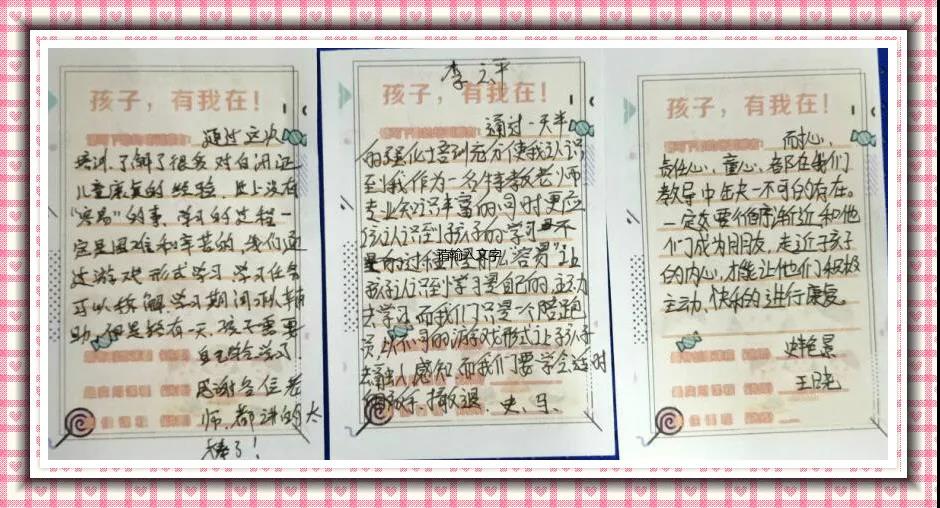 孩子，有我在！
通过这次
培训，了解了很多对自闭症
儿童康复的经验，世上没有
“容易”的事，学习的过程一
定是困难和辛苦的，我们通
过游戏形式学习，学习任务
可以拆解，学习期间可以辅
助，但是总有一天，孩子需要
自己学会学习。
感谢各位老
师，都讲的太
棒了！
李云平
孩子，有我在！
通过一天半
的强化培训充分使我认识
到我作为一名特教老师
专业知识丰富的同时更应
该认识到孩子的学习不
是的过程是那么容易
请输入文字
孩子认识到学习是自己的，主动
去学习，而我们只是一个陪跑
员，以不同的游戏形式让孩子
去融入感知，而我们要学会适时
的放手、撤退。
孩子，有我在！
耐心、
责任心、童心、都在我们
教导中缺一不可的存在。
一定要循序渐近和他
们成为朋友，走近孩子
的内心，才能让他们积极
主动、快乐的进行康复。